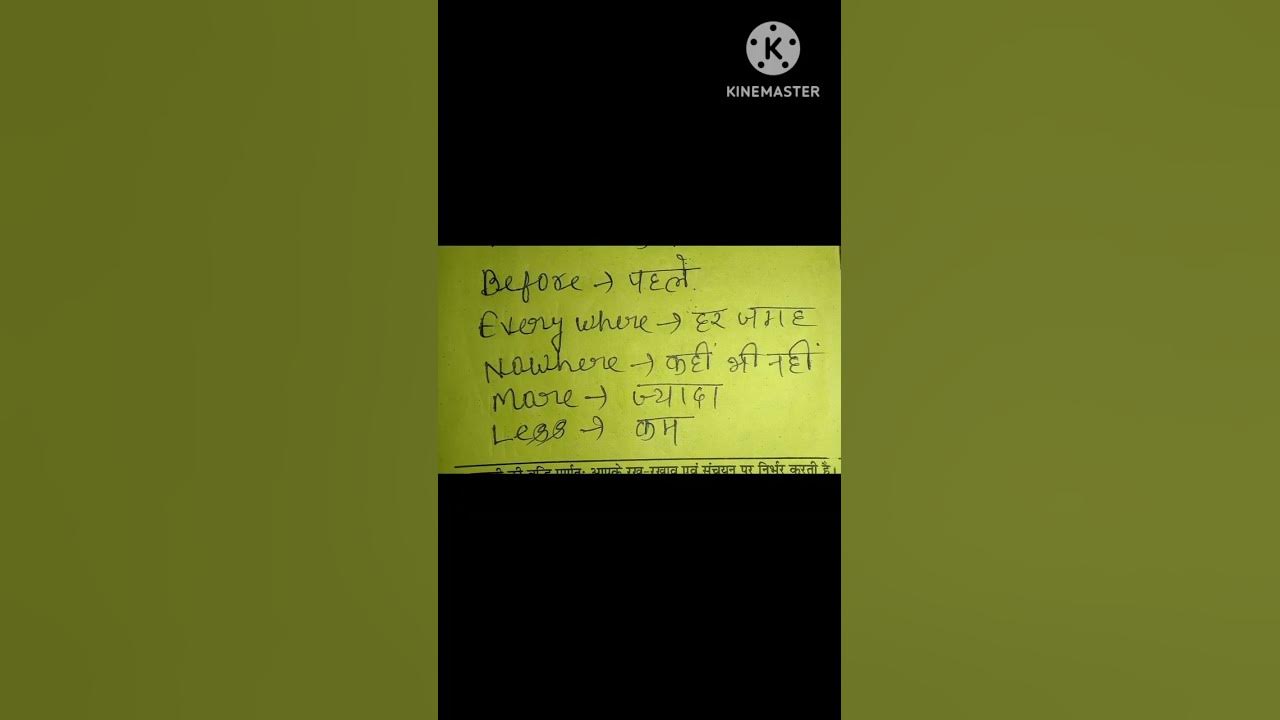 K
KINEMASTER
Before → पहले.
Every where → हर जगह
Nowhere → कहीं भी नहीं
More → ज्यादा
Less → कम
आपके रख-रखाव एवं संचयन पर निर्भर करती है।